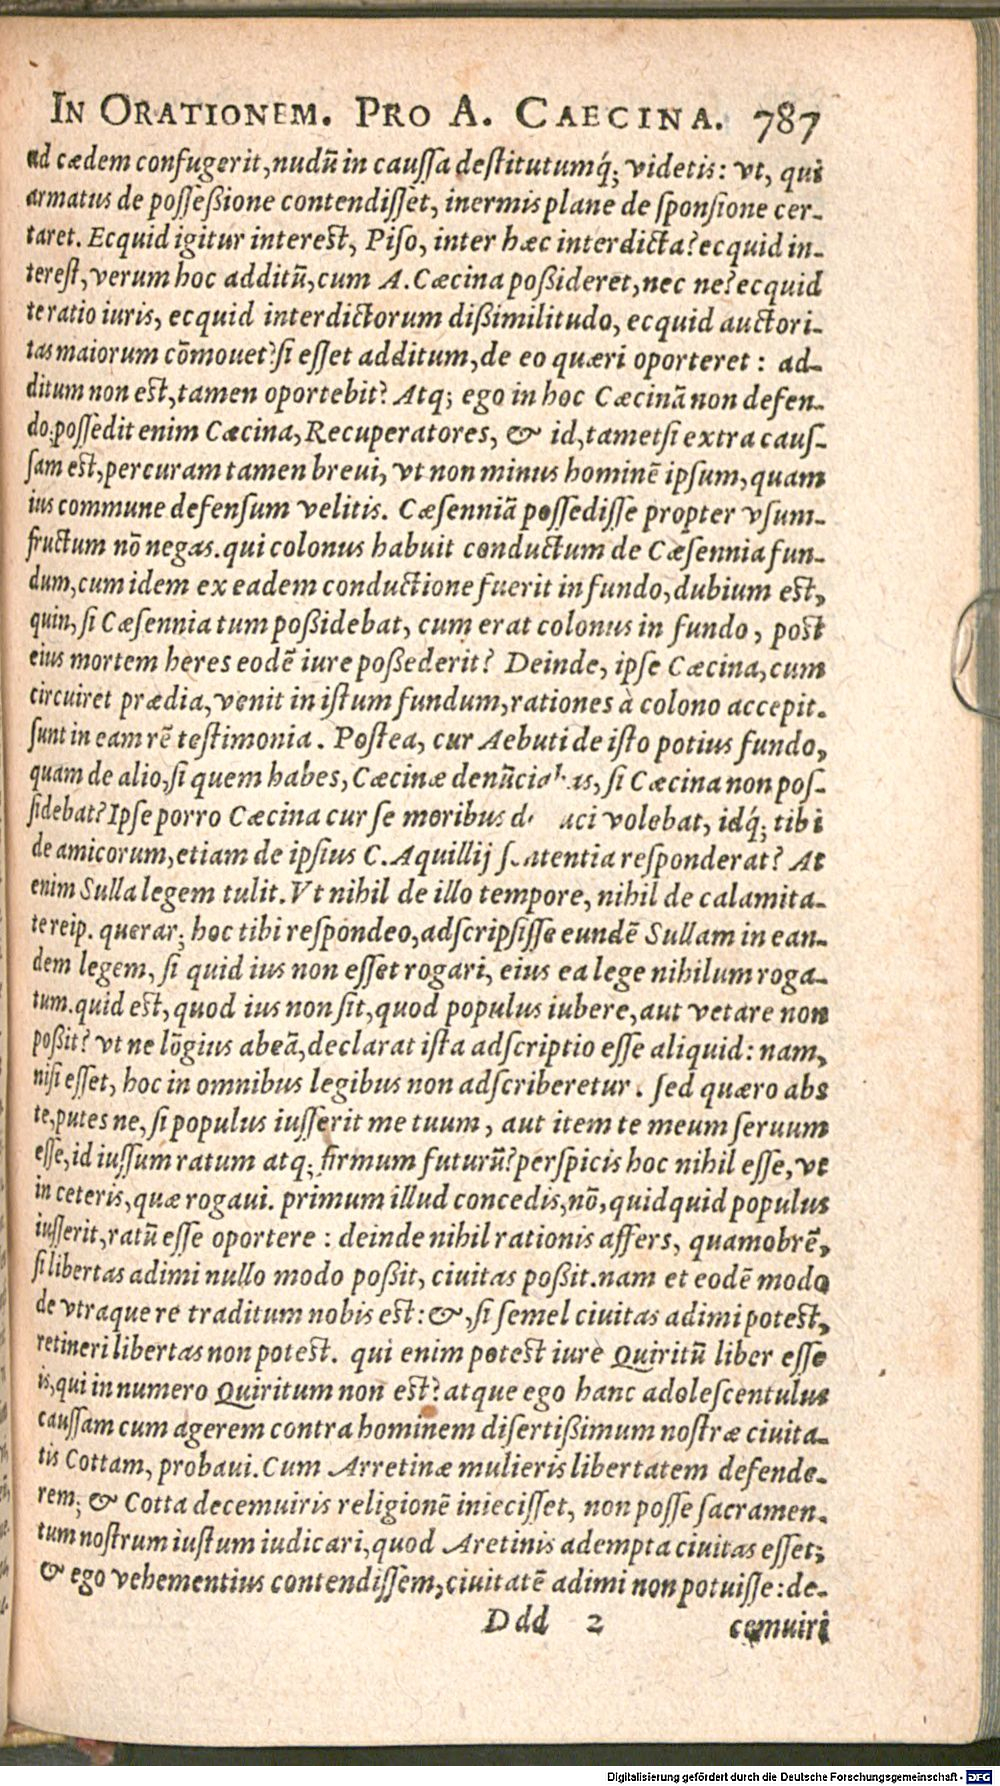 IN ORATIONEM. PRO A. CAECINA. 787
ad cædem confugerit, nudū in caussa destitutumq́; videtis: vt, qui
armatus de possessione contendisset, inermis plane de sponsione cer-
taret. Ecquid igitur interest, Piso, inter hæc interdicta? ecquid in-
terest, verum hoc additū, cum A. Cæcina possideret, nec ne? ecquid
te ratio iuris, ecquid interdictorum dissimilitudo, ecquid auctori-
tas maiorum cōmouet? si esset additum, de eo quæri oporteret: ad-
ditum non est, tamen oportebit? Atq; ego in hoc Cæcinā non defen-
do: possedit enim Cæcina, Recuperatores, & id, tametsi extra caus-
sam est, percuram tamen breui, vt non minus hominē ipsum, quam
ius commune defensum velitis. Cæsenniā possedisse propter vsum-
fructum nō negas. qui colonus habuit conductum de Cæsennia fun-
dum, cum idem ex eadem conductione fuerit in fundo, dubium est,
quin, si Cæsennia tum possidebat, cum erat colonus in fundo, post
eius mortem heres eodē iure possederit? Deinde, ipse Cæcina, cum
circuiret prædia, venit in istum fundum, rationes à colono accepit.
sunt in eam rē testimonia. Postea, cur Aebuti de isto potius fundo,
quam de alio, si quem habes, Cæcinæ si Cæcina non pos-
sidebat? Ipse porro Cæcina cur se moribus volebat, idq́; tibi
de amicorum, etiam de ipsius C. Aquillij responderat? At
enim Sulla legem tulit. Vt nihil de illo tempore, nihil de calamita-
te reip. querar; hoc tibi respondeo, adscripsisse eundē Sullam in ean-
dem legem, si quid ius non esset rogari, eius ea lege nihilum roga-
tum. quid est, quod ius non sit, quod populus iubere, aut vetare non
possit? vt ne lōgius abeā, declarat ista adscriptio esse aliquid: nam,
nisi esset, hoc in omnibus legibus non adscriberetur. sed quæro abs
te, putes ne, si populus iusserit me tuum, aut item te meum seruum
esse, id iussum ratum atq; firmum futurū? perspicis hoc nihil esse, vt
in ceteris, quæ rogaui. primum illud concedis, nō, quidquid populus
iusserit, ratū esse oportere: deinde nihil rationis affers, quamobrē,
si libertas adimi nullo modo possit, ciuitas possit. nam et eodē modo
de vtraque re traditum nobis est: &, si semel ciuitas adimi potest,
retineri libertas non potest. qui enim potest iure Quiritū liber esse
is, qui in numero Quiritum non est? atque ego hanc adolescentulus
caussam cum agerem contra hominem disertissimum nostræ ciuita-
tis Cottam, probaui. Cum Arretinæ mulieris libertatem defende-
rem; & Cotta decemuiris religionē iniecisset, non posse sacramen-
tum nostrum iustum iudicari, quod Aretinis adempta ciuitas esset;
& ego vehementius contendissem, ciuitatē adimi non potuisse: de-
Ddd 2 cemuiri
Digitalisierung gefördert durch die Deutsche Forschungsgemeinschaft - DFG